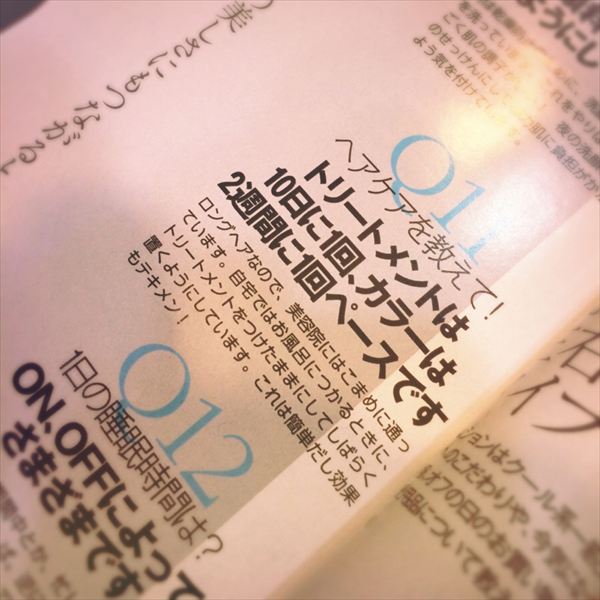 美しさにもつながると
ようにし
を洗っています
ごく肌の調子が
のせっけんにし
よう気を付けて
夜の洗顔
肌に負担がか
Q11
ヘアケアを教えて！
トリートメントは
10日に1回、カラーは
2週間に1回ペースです
ロングヘアなので、美容院にはこまめに通っ
ています。自宅ではお風呂につかるときに、
トリートメントをつけたままにしてしばらく
置くようにしています。これは簡単だし効果
もテキメン！
Q12
1日の睡眠時間は？
ON、OFFによって
さまざまです
ションはクール系
こだわりや、今気にな
オフの日のお買い
について教え